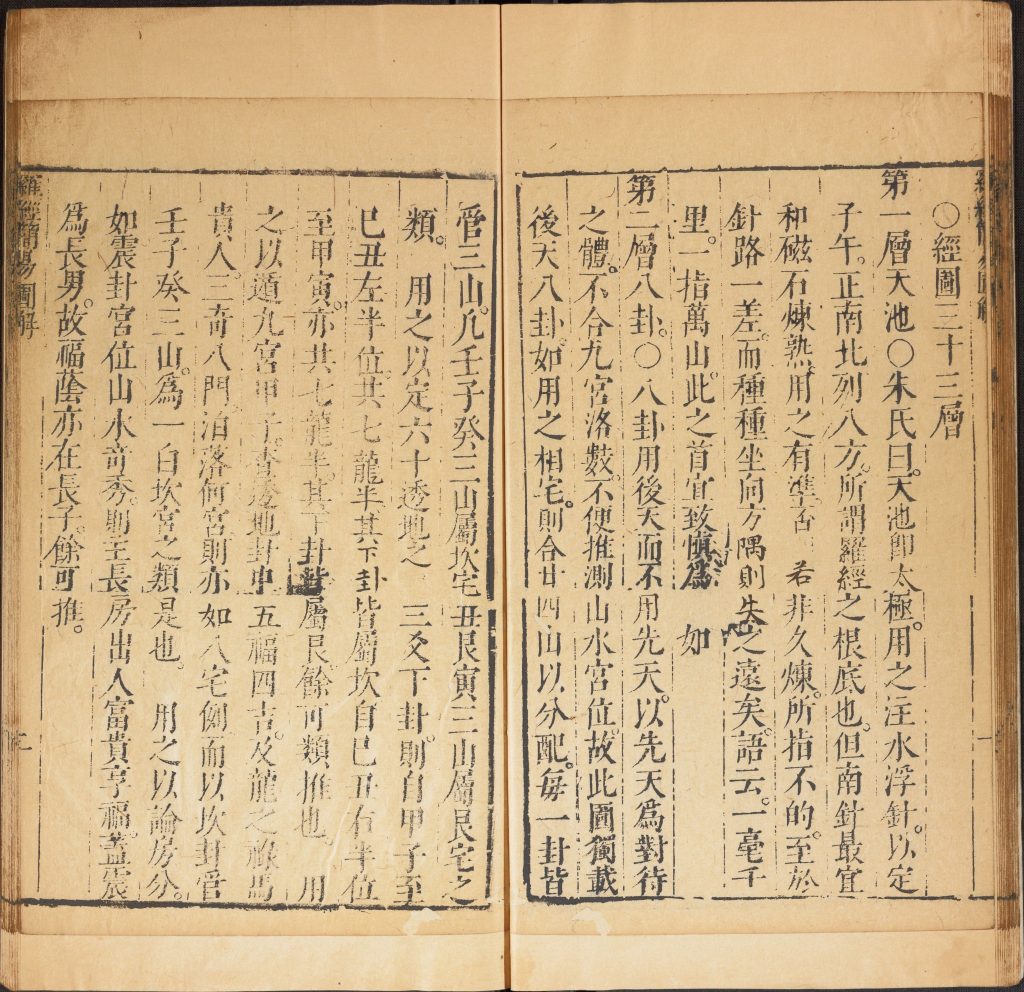 〇經圖三十三層
第一層天池〇朱氏曰。天池卽太極。用之注水浮針。以定
子午。正南北列八方。所謂羅經之根底也。但南針最宜
和磁石煉熟。用之有準否。若非久煉。所指不的。至於
針路一差。而種種坐向方隅則失之遠矣。語云。一毫千
里。一指萬山。此之首宜致慎爲 如
第二層八卦。〇八卦用後天而不用先天。以先天爲對待
之體。不合九宮洛數。不便推測山水宮位。故此圖獨載
後天八卦。如用之相宅。則合廿四山以分配。每一卦皆
管三山。凡壬子癸三山屬坎宅丑艮寅三山屬艮宅之
類。 用之以定六十透地之 三爻下卦。則自甲子至
己丑左半位共七龍半。其下卦皆屬坎自己丑右半位
至甲寅。亦共七龍半。其下卦皆屬艮餘可類推也。 用
之以遁九宮甲子。查透地卦中五福四吉。及龍之祿馬
貴人。三奇八門泊落何宮則亦如八宅例而以坎卦管
壬子癸三山。爲一白坎宮之類是也。 用之以論房分。
如震卦宮位山水奇秀。則主長房出人富貴享福。蓋震
爲長男。故福蔭亦在長子。餘可推。
羅經簡易圖解